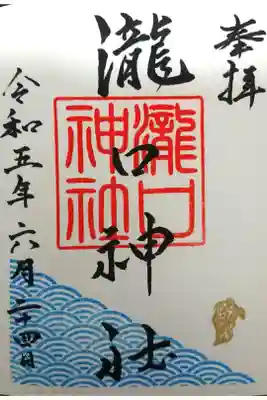 奉拝
瀧口神社
瀧口
神社
令和五年六月二十四日